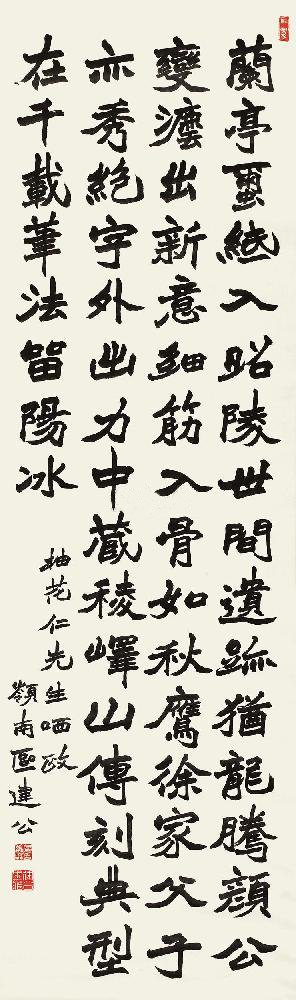 蘭亭繭紙入昭陵世間遺跡猶龍騰顏公
變灋出新意細筋入骨如秋鷹徐家父子
亦秀絕字外出力中藏稜嶧山傳刻典型
在千載筆法留陽冰
花仁先生哂政
嶺南區建公